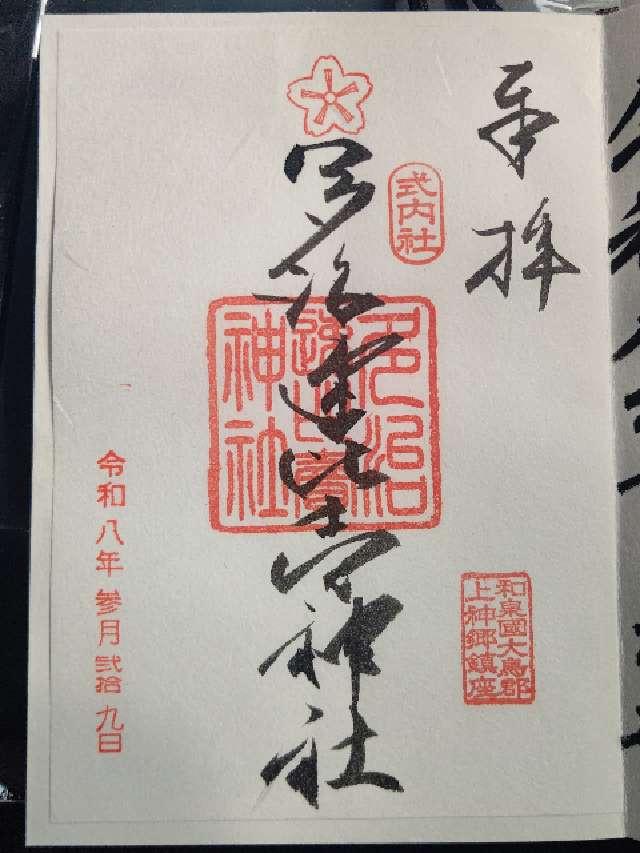 奉拝
式内社
多治速比売神社
多治
速比賣
神社
和泉國大鳥郡
上神郷鎮座
令和八年参月弐拾九日